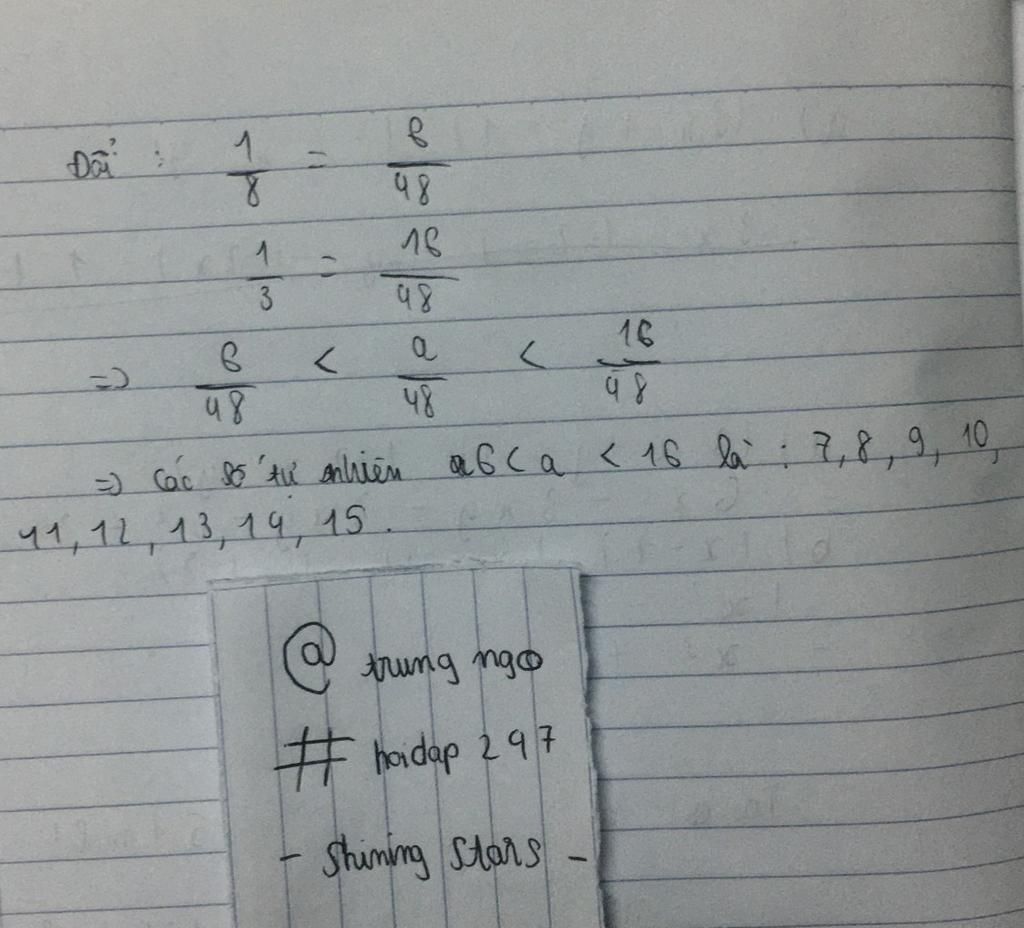 Đổi : 1/8 = 6/48
1/3 = 16/48
=> 6/48 < a/48 < 16/48
=> Các số tự nhiên 6 < a < 16 là : 7, 8, 9, 10,
11, 12, 13, 14, 15.
@ trung ngo
# hoidap 297
- Shining Stars -